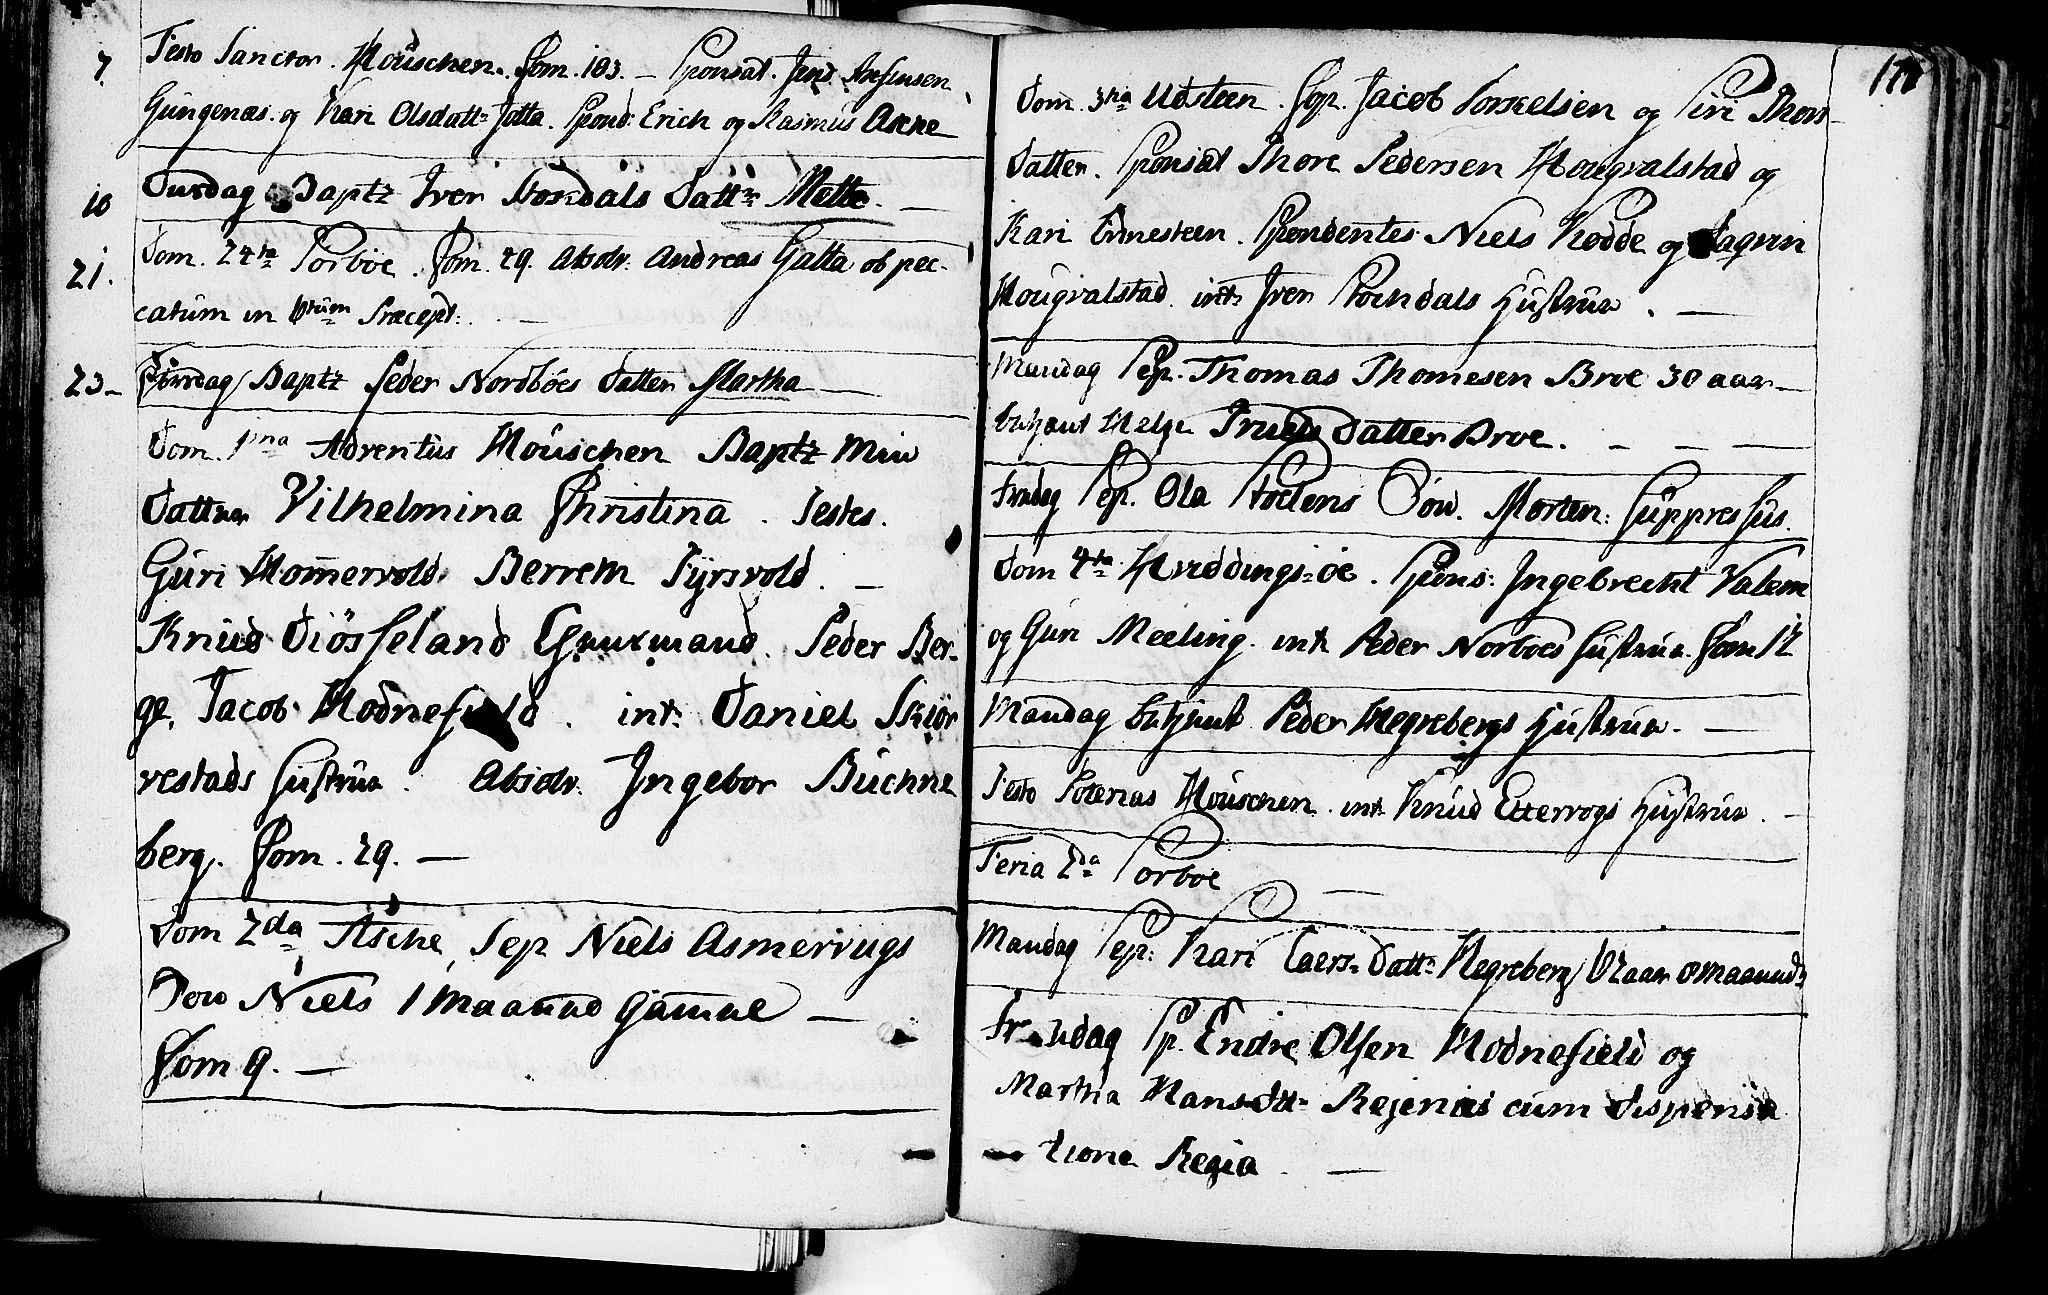 7. Festo Sanctor. Houschen. Com. 103. — Sponsat. Jens
Gungenæs. og Kari Olsdattr Jotta. Spond: Erich og Rasmus Asche
10 Tirsdag Baptz Iver Nordals Dattr Mette. —
21. Dom. 24ta Sorböe. Com. 29. Absolv: Andreas Galta ob pec-
catum in 6tum Præcept: —
23 Baptz Peder Nordböes Datter Martha —
Dom. 1ma Adventus Houschen Baptz Min
Datter Vilhelmina Christina. Testes.
Guri Hommervold. Berrem Fÿrsvold. —
Knud Diösseland Peder Ber-
ge, Jacob Hodnefield. int: Daniel Skiör
restads Hustrue. Absolv. Ingebor Buchne
berg. Com. 29. —
Dom 2da Asche, Sep Niels Asmervugs
Sön Niels 1 Maaned gammel —
Com 9. —
177
Dom. 3tia Udsteen. Cop. Jacob Torkelsen og Siri Thors
Datter. Sponsat Thore Pedersen Hougvalstad og
Kari Ednesteen. Spondentes Niels Kodde og Dagvin
Hougvalstad. int: Iver Hustrue. —
Mandag Sep. Thomas Thomesen Broe 30 aar —
Datter Broe. — — —
Sep. Ola Sön. Morten: suppressus.
Dom 4ta Hviddings-öe. Spons: Ingebrecht Valem
og Guri Meeling. int: Peder Norboes Hustrue. Com 12
Mandag Peder Hegrebergs Hustrue. —
Festo Soterias Houschen. int: Knud Ettervogs Hustrue. —
Feria 2da Sorboe —
Mandag Sep: Kari Laers Dattr Hegreberg
Cop. Endre Olsen Hodnefield og
Martha Hansdttr Regenæs cum dispensa
tione Regia. —